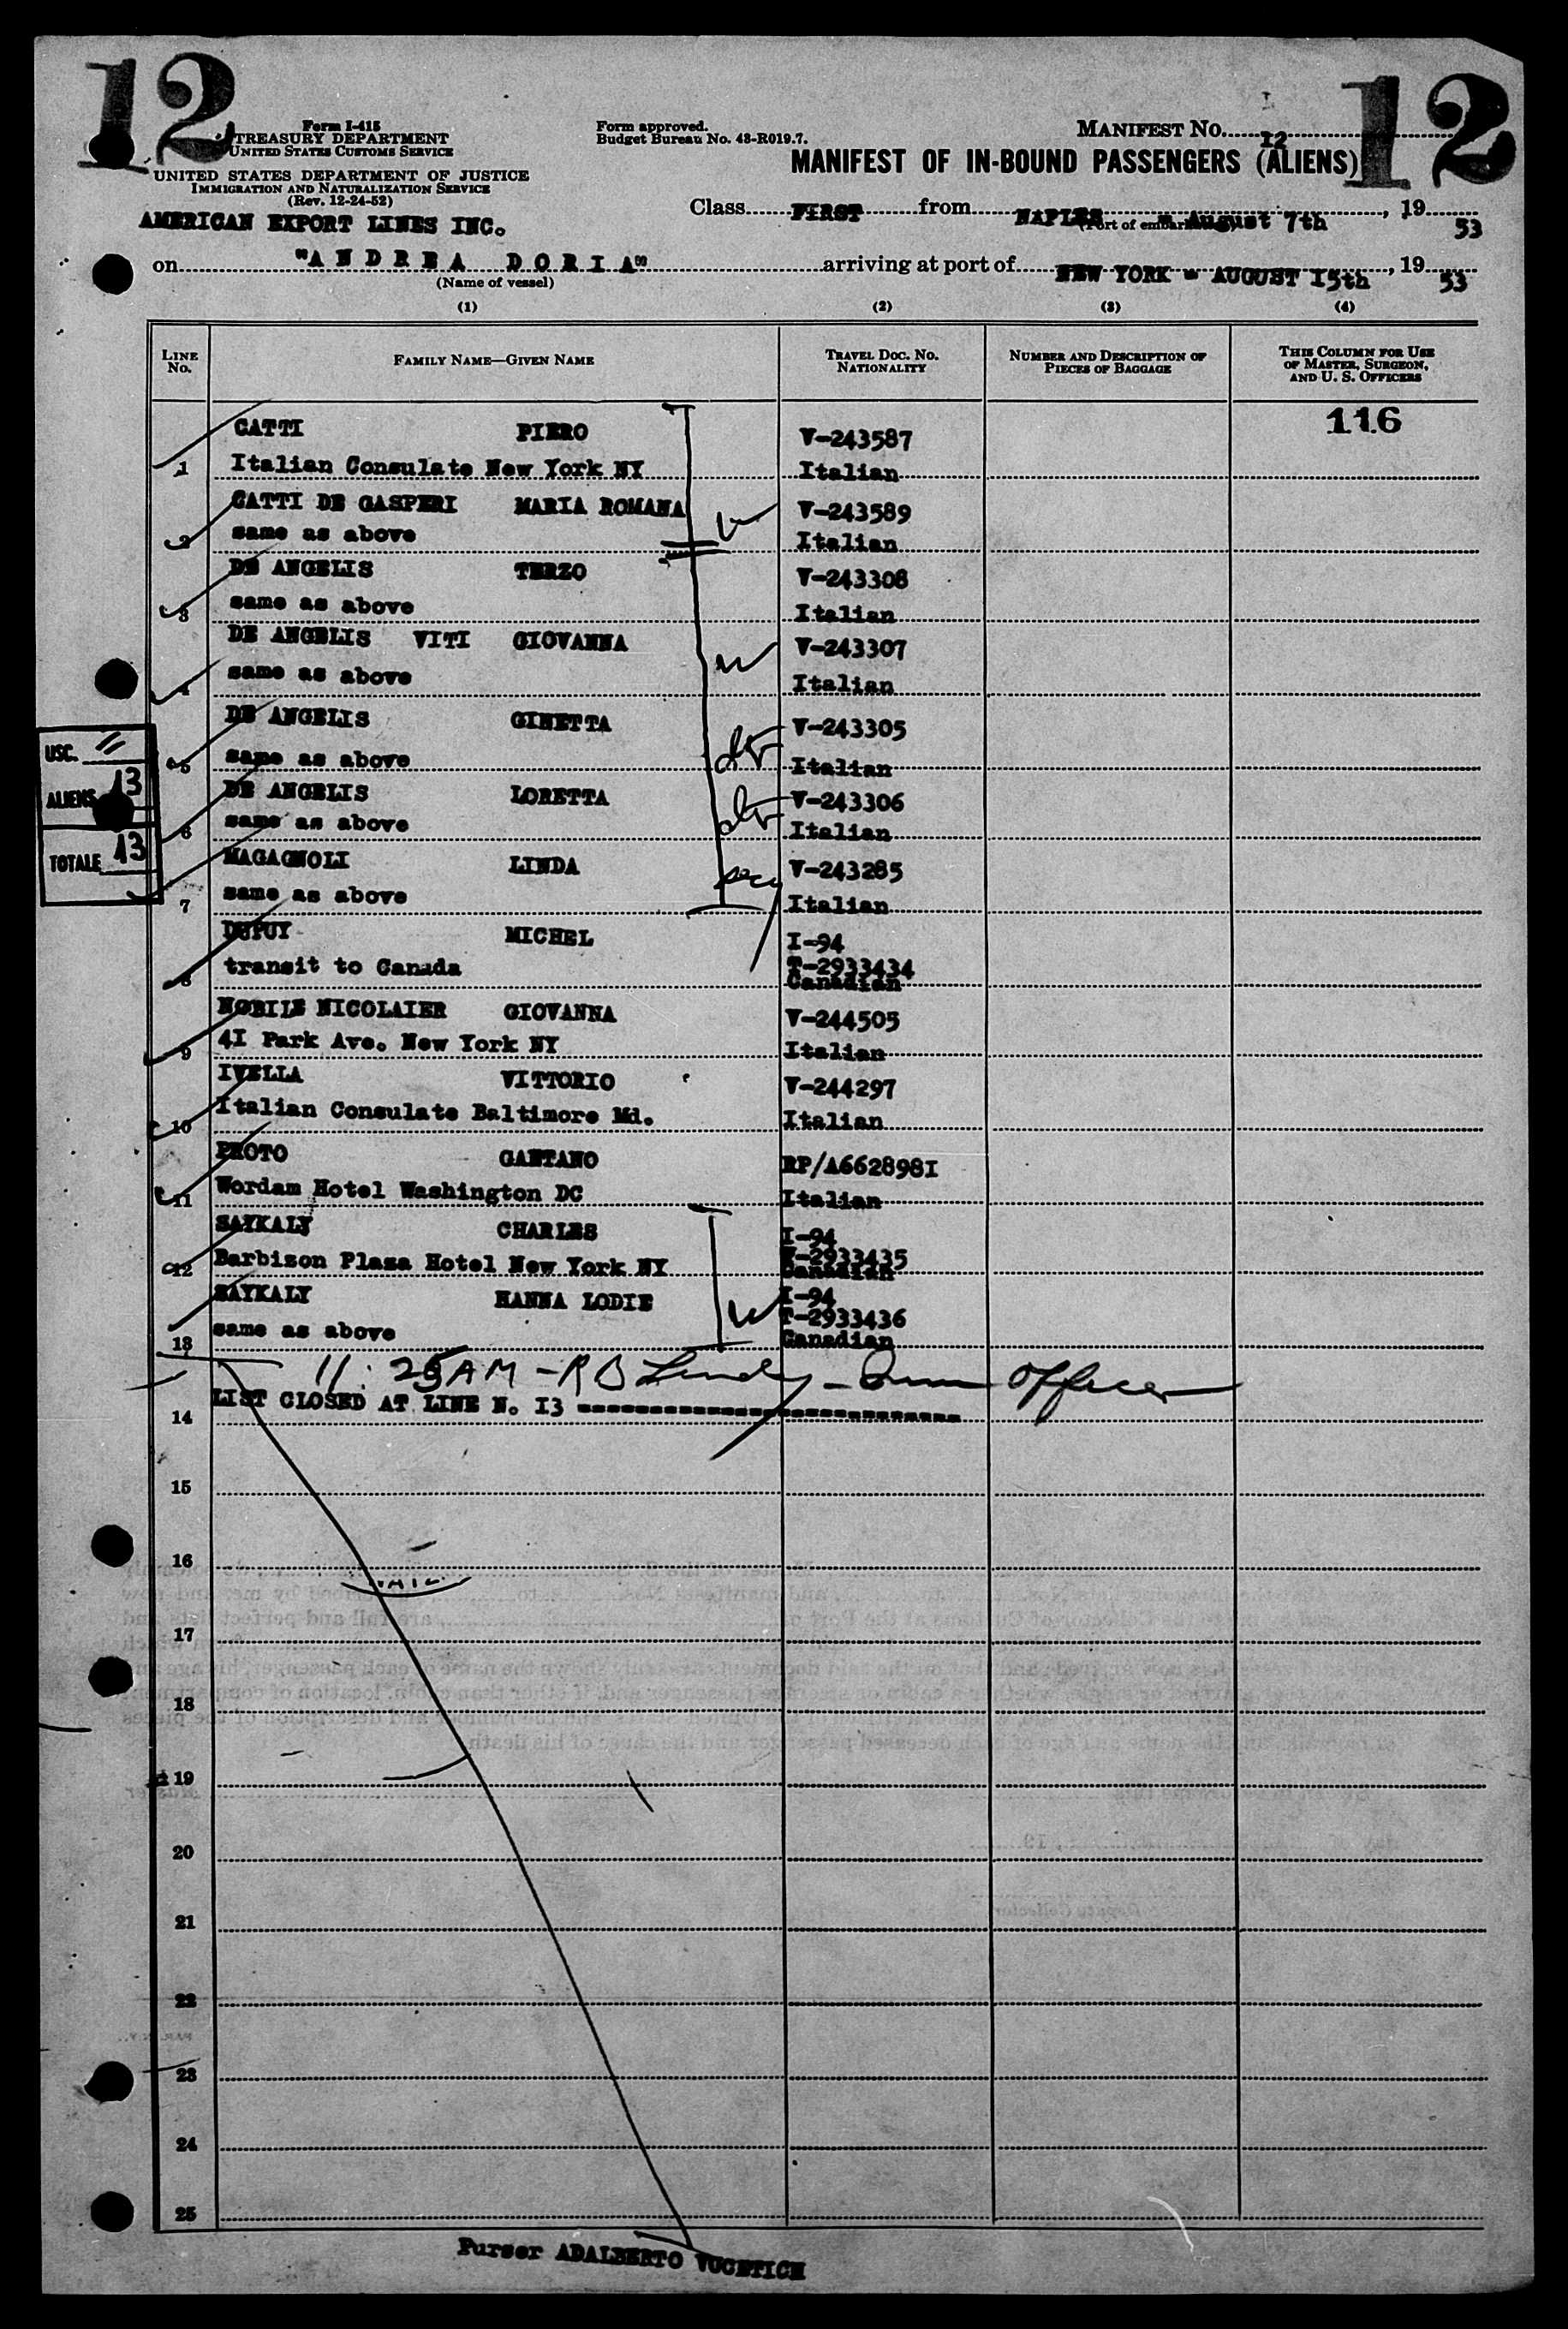 12
12
Form I-415
TREASURY DEPARTMENT
UNITED STATES CUSTOMS SERVICE
UNITED STATES DEPARTMENT OF JUSTICE
IMMIGRATION AND NATURALIZATION SERVICE
(Rev. 12-24-52)
Form approved.
Budget Bureau No. 43-R019.7.
MANIFEST NO. 12
MANIFEST OF IN-BOUND PASSENGERS (ALIENS)
AMERICAN EXPORT LINES INC.
Class FIRST from NAPLES August 7th, 19 53
(Port of embarkation)
on "ANDREA DORIA" arriving at port of NEW YORK - AUGUST 15th, 19 53
(Name of vessel)
(1) (2) (3) (4)
LINE NO.
FAMILY NAME—GIVEN NAME
TRAVEL DOC. NO. NATIONALITY
NUMBER AND DESCRIPTION OF PIECES OF BAGGAGE
THIS COLUMN FOR USE OF MASTER, SURGEON, AND U. S. OFFICERS
116
CATTI PIERO V-243587
1 Italian Consulate New York NY Italian
CATTI DE GASPERI MARIA ROMANA V-243589
2 same as above Italian
DE ANGELIS TERZO V-243308
3 same as above Italian
DE ANGELIS VITI GIOVANNA V-243307
4 same as above Italian
DE ANGELIS GINETTA V-243305
5 same as above Italian
DE ANGELIS LORETTA V-243306
6 same as above Italian
MAGAGNOLI LINDA V-243285
7 same as above Italian
DUPUY MICHEL I-94
8 transit to Canada T-2933434
Canadian
NOBILE NICOLAIER GIOVANNA V-244505
9 41 Park Ave. New York NY Italian
IVELLA VITTORIO V-244297
10 Italian Consulate Baltimore Md. Italian
PROTO GAETANO RP/A6628981
11 Wordam Hotel Washington DC Italian
SAYKALY CHARLES I-94
12 Barbizon Plaza Hotel New York NY T-2933435
Canadian
SAYKALY HANNA LODIE I-94
T-2933436
13 same as above Canadian
11:25 AM - R B Officer
14 LIST CLOSED AT LINE N. 13
15
16
17
18
19
20
21
22
23
24
25
USC.
ALIENS 13
TOTALE 13
Purser ADALBERTO VUCETICH